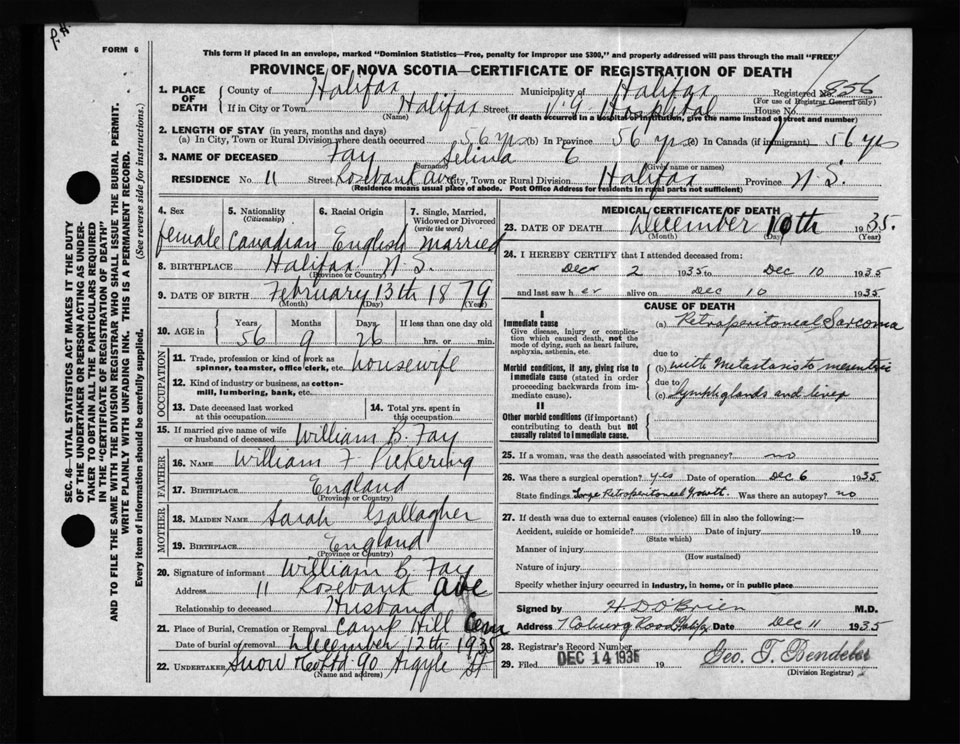 P.H.
FORM 6
This form if placed in an envelope, marked "Dominion Statistics—Free, penalty for improper use $300," and properly addressed will pass through the mail "FREE"
PROVINCE OF NOVA SCOTIA—CERTIFICATE OF REGISTRATION OF DEATH
1. PLACE OF DEATH
County of Halifax Municipality of Halifax Registered No. 856
(For use of Registrar General only)
If in City or Town Halifax Street V.G. Hospital House No.
(Name) (If death occurred in a hospital or institution, give the name instead of street and number)
2. LENGTH OF STAY (in years, months and days)
(a) In City, Town or Rural Division where death occurred 56 yrs (b) In Province 56 yrs (c) In Canada (if immigrant) 56 yrs
3. NAME OF DECEASED Fay Selina E
(Surname) (Given name or names)
RESIDENCE No. 11 Street Rosebank ave City, Town or Rural Division Halifax Province N.S.
(Residence means usual place of abode. Post Office Address for residents in rural parts not sufficient)
4. Sex female
5. Nationality (Citizenship) Canadian
6. Racial Origin English
7. Single, Married, Widowed or Divorced (write the word) married
8. BIRTHPLACE Halifax N.S.
(Province or Country)
9. DATE OF BIRTH February 13th 1879
(Month) (Day) (Year)
10. AGE in Years Months Days If less than one day old
56 9 26 hrs. or min.
OCCUPATION
11. Trade, profession or kind of work as spinner, teamster, office clerk, etc. housewife
12. Kind of industry or business, as cotton-mill, lumbering, bank, etc.
13. Date deceased last worked at this occupation
14. Total yrs. spent in this occupation
15. If married give name of wife or husband of deceased William B. Fay
FATHER
16. NAME William F Pickering
17. BIRTHPLACE England
(Province or Country)
MOTHER
18. MAIDEN NAME Sarah Gallagher
19. BIRTHPLACE England
(Province or Country)
20. Signature of informant William B. Fay
Address 11 Rosebank ave
Relationship to deceased Husband
21. Place of Burial, Cremation or Removal Camp Hill Cem
Date of burial or removal December 12th 1935
22. UNDERTAKER Snow 90 Argyle St
(Name and address)
MEDICAL CERTIFICATE OF DEATH
23. DATE OF DEATH December 10th 1935.
(Month) (Day) (Year)
24. I HEREBY CERTIFY that I attended deceased from:
Dec 2 1935 to Dec 10 1935
and last saw her alive on Dec 10 1935
CAUSE OF DEATH
I
Immediate cause
Give disease, injury or complication which caused death, not the mode of dying, such as heart failure, asphyxia, asthenia, etc.
(a) Retroperitoneal Sarcoma
due to
Morbid conditions, if any, giving rise to immediate cause (stated in order proceeding backwards from immediate cause).
(b) with Metastasis to mesentric
due to
(c) lymph glands and liver
II
Other morbid conditions (if important) contributing to death but not causally related to immediate cause.
25. If a woman, was the death associated with pregnancy? no
26. Was there a surgical operation? yes Date of operation Dec 6 1935
State findings Large Retroperitoneal Growth. Was there an autopsy? no
27. If death was due to external causes (violence) fill in also the following:—
Accident, suicide or homicide? Date of injury 19
(State which)
Manner of injury
(How sustained)
Nature of injury
Specify whether injury occurred in industry, in home, or in public place
Signed by H D O'Brien M.D.
Address 7 Coburg Road Halifax Date Dec 11 1935
28. Registrar's Record Number
29. Filed DEC 14 1935 19 Geo. T. Bendeler
(Division Registrar)
SEC. 46—VITAL STATISTICS ACT MAKES IT THE DUTY
OF THE UNDERTAKER OR PERSON ACTING AS UNDERTAKER TO OBTAIN ALL THE PARTICULARS REQUIRED
IN THE "CERTIFICATE OF REGISTRATION OF DEATH"
AND TO FILE THE SAME WITH THE DIVISION REGISTRAR WHO SHALL ISSUE THE BURIAL PERMIT.
WRITE PLAINLY WITH UNFADING INK. THIS IS A PERMANENT RECORD.
Every item of information should be carefully supplied. (See reverse side for instructions.)